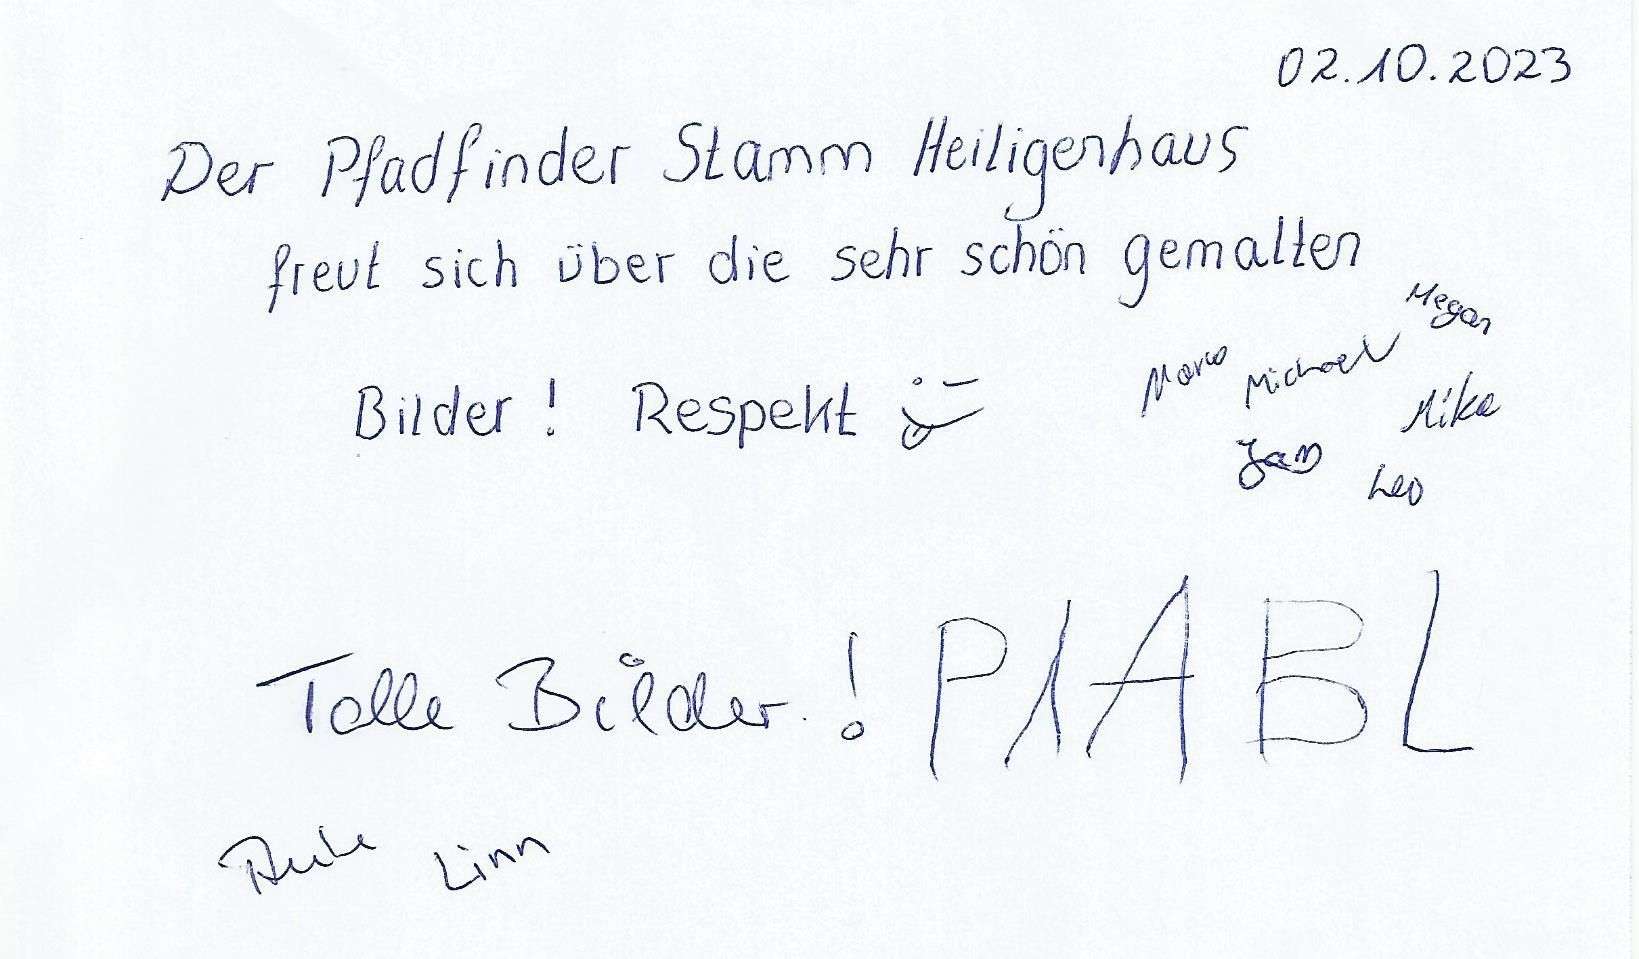 02.10.2023
Der Pfadfinder Stamm Heiligenhaus
freut sich über die sehr schön gemalten
Bilder! Respekt
Megan
Marco Michael
Mike
Jan
Leo
Tolle Bilder!
Linn